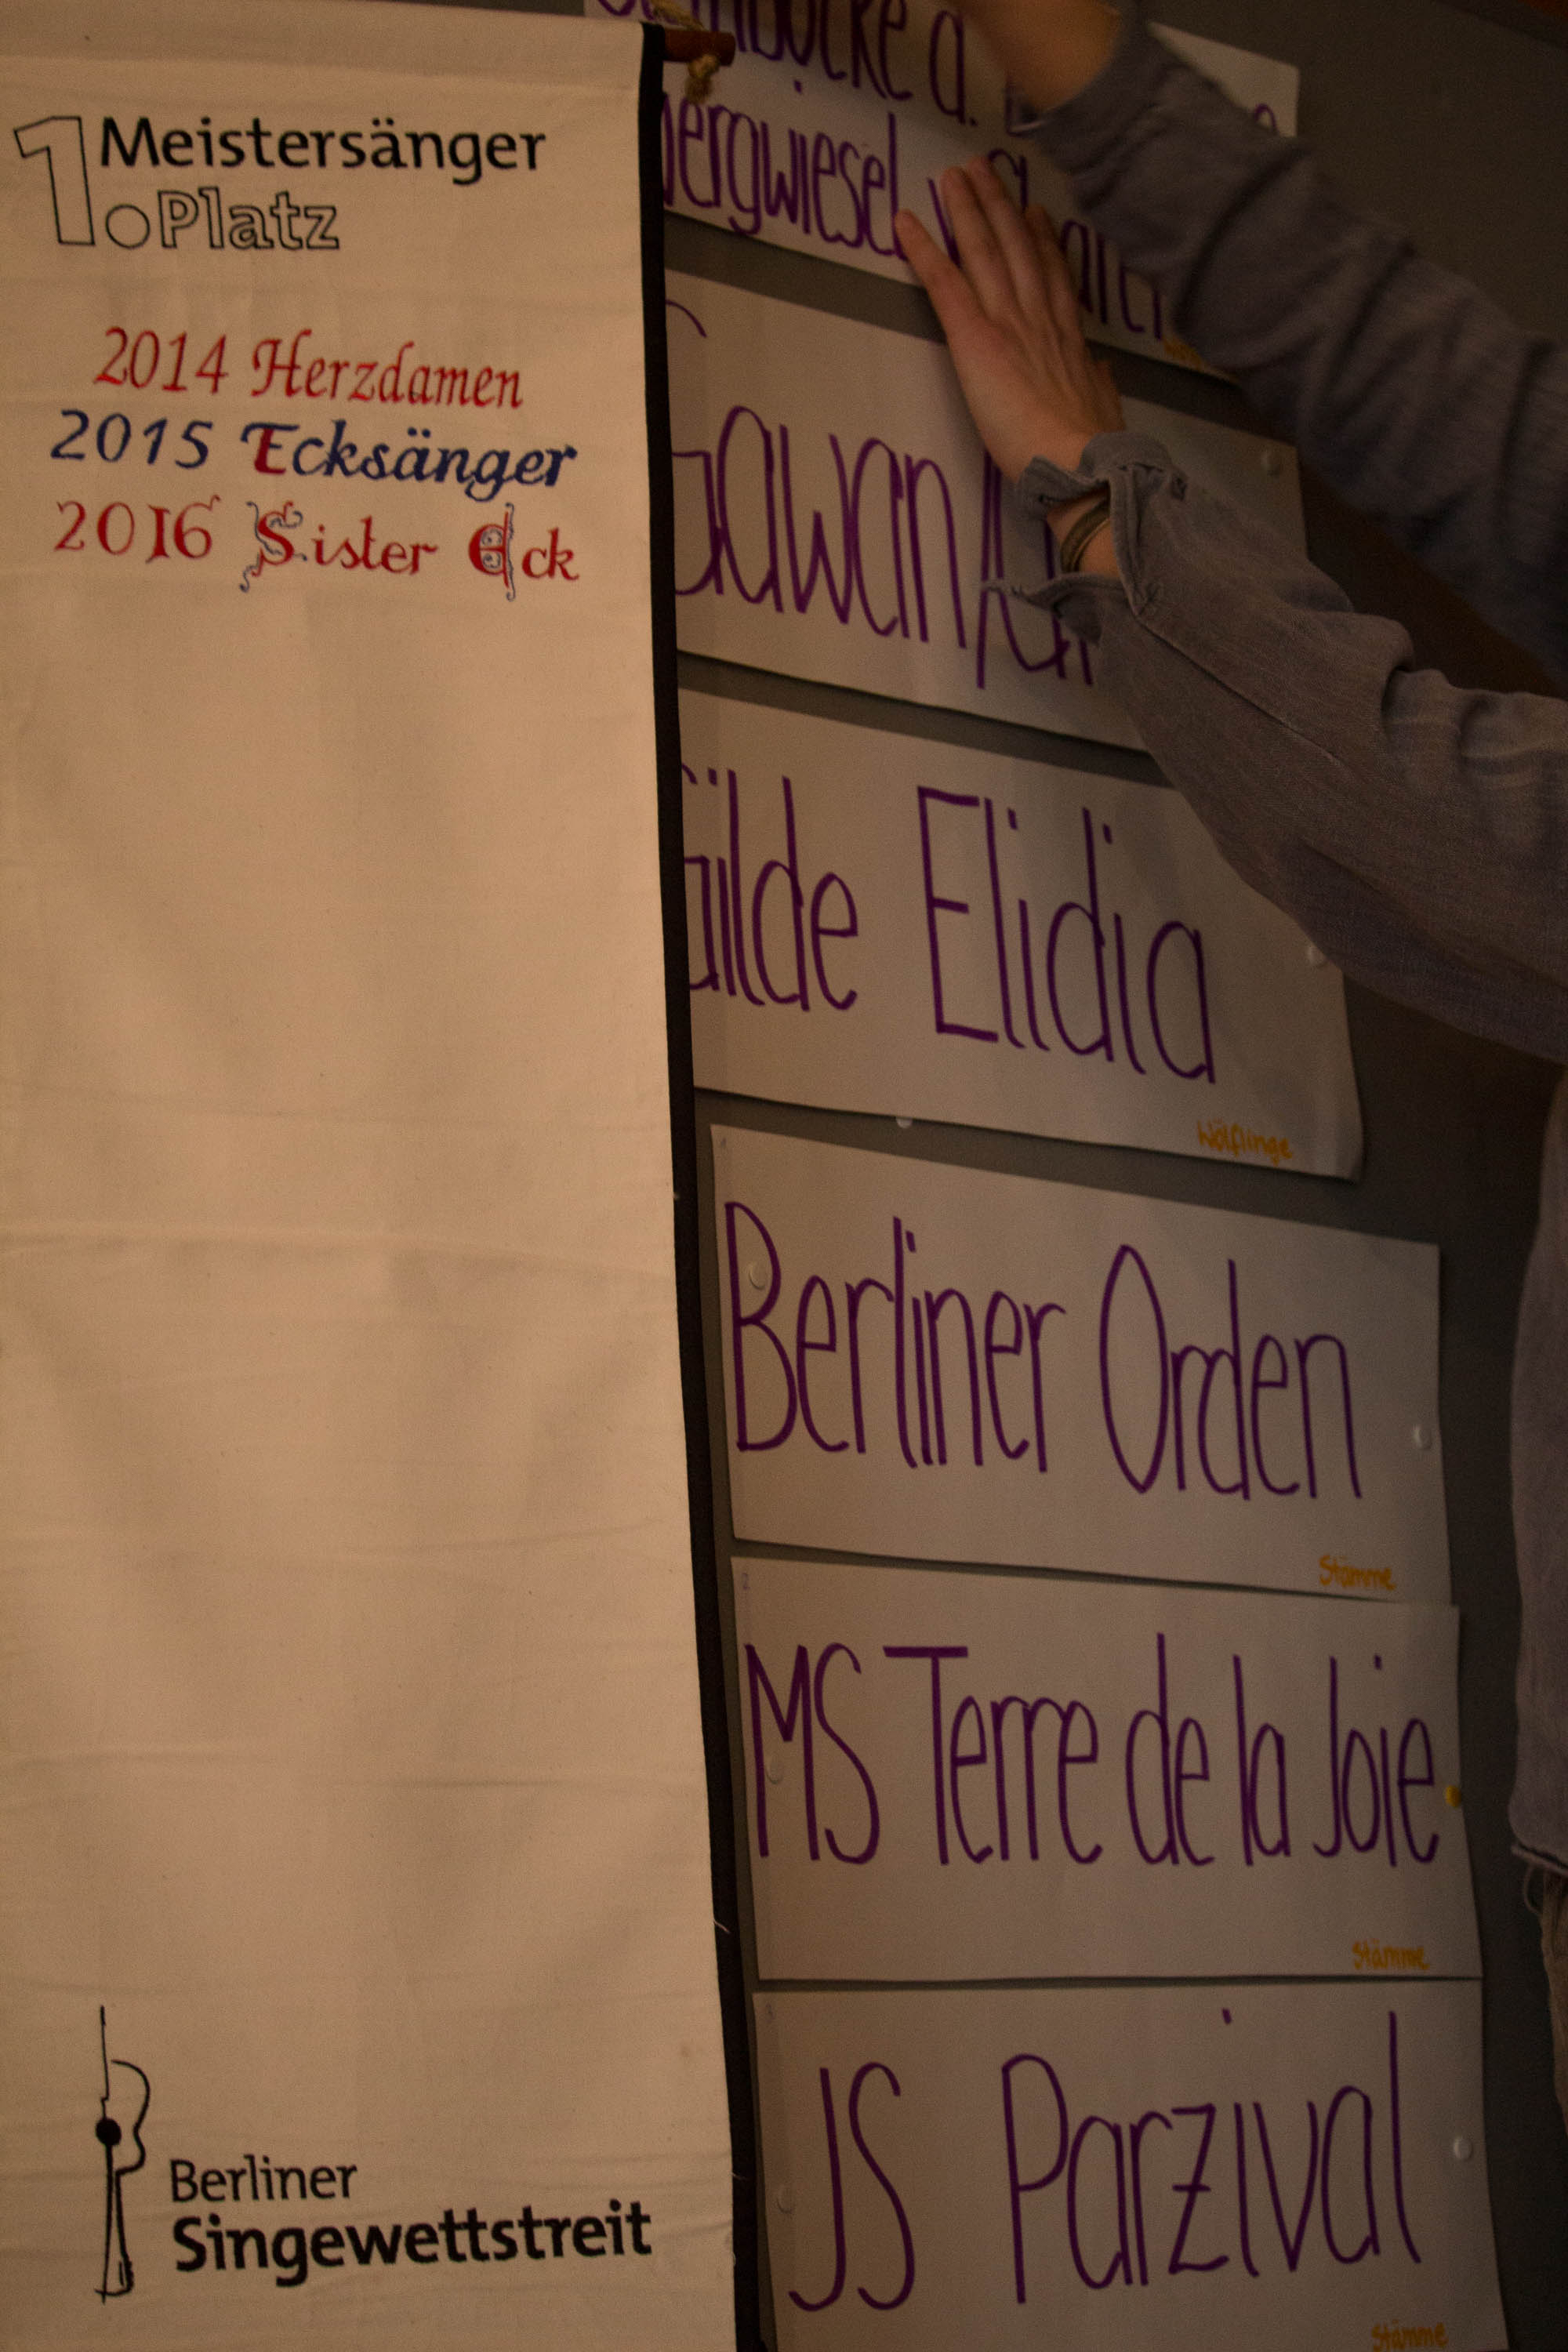 1. Meistersänger
Platz
2014 Herzdamen
2015 Ecksänger
2016 Sister Eck
Berliner
Singewettstreit
Elidia
Wölflinge
Berliner Orden
Stämme
MS Terre de la Joie
Stämme
JS Parzival
Stämme